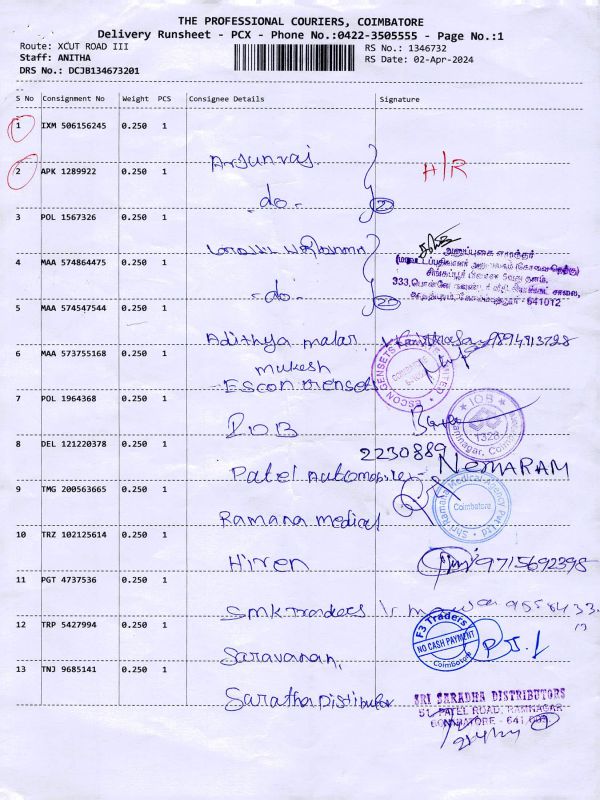 THE PROFESSIONAL COURIERS, COIMBATORE
Delivery Runsheet - PCX - Phone No.:0422-3505555 - Page No.:1
Route: XCUT ROAD III
RS No.: 1346732
Staff: ANITHA
RS Date: 02-Apr-2024
DRS No.: DCJB134673201
S No Consignment No Weight PCS Consignee Details Signature
1 IXM 506156245 0.250 1
Arjunraj.
H/R
2 APK 1289922 0.250 1
-do-
2
3 POL 1567326 0.250 1
4 MAA 574864475 0.250 1
-do-
2
641012
5 MAA 574547544 0.250 1
Adithya malar
9894913728
6 MAA 573755168 0.250 1
mukesh
Escon Gensets
ESCON GENSETS
7 POL 1964368 0.250 1
I.O.B
IOB
1328
8 DEL 121220378 0.250 1
2230889
Patel Automobiles - NEMARAM
9 TMG 200563665 0.250 1
Ramana medical
Shri Ramana Medical Agency Pvt Ltd
Coimbatore
10 TRZ 102125614 0.250 1
Hiren
9715692398
11 PGT 4737536 0.250 1
SMK Traders
12 TRP 5427994 0.250 1
Saravanan,
F3 Traders
NO CASH PAYMENT
Coimbatore
13 TNJ 9685141 0.250 1
Saratha Distibutor
SRI SARADHA DISTRIBUTORS
51, PATEL ROAD, RAMNAGAR
COIMBATORE - 641 009.